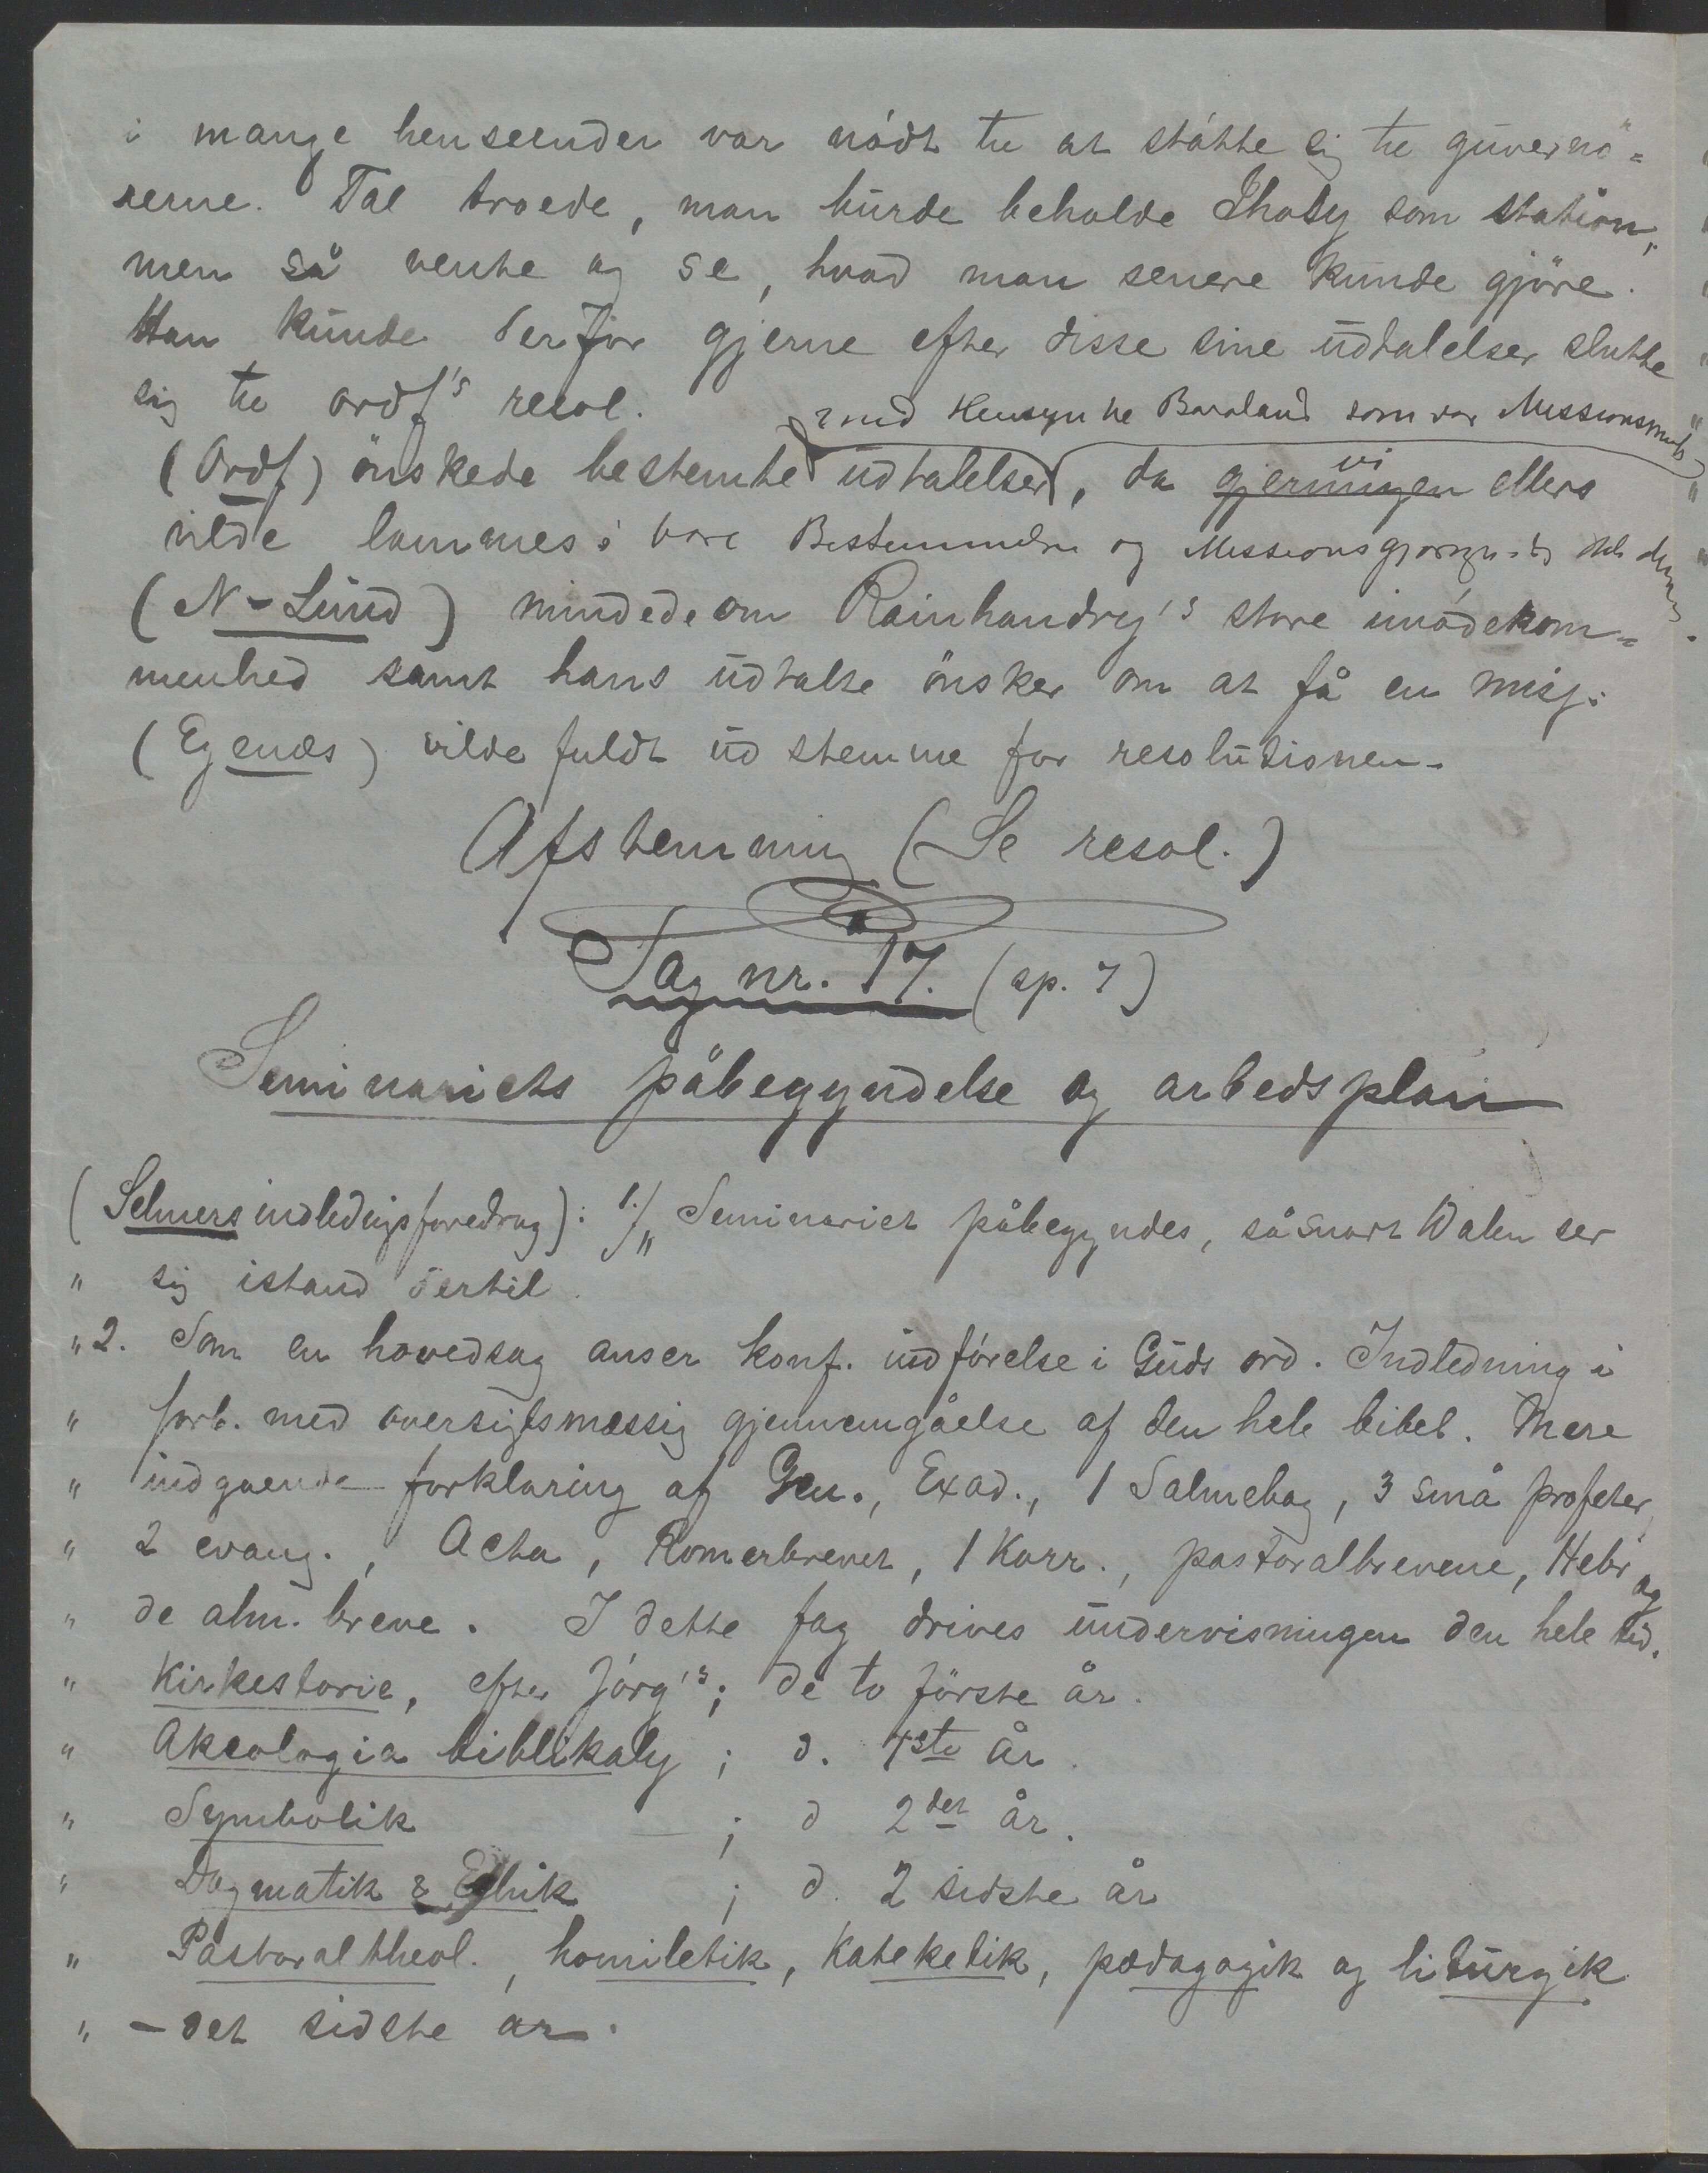 i mange henseender var nödt til at stötte sig til guvernö=
rerne. Tal troede, man burde beholde Ihosy som station,
men så vente og se, hvad man senere kunde gjöre.
Han kunde derfor gjerne efter disse sine udtalelser slutte
sig til ordf's resol.
med Hensyn til Baraland som var Missionsmark
(Ordf) önskede bestemte udtalelser, da vi gjerningen ellers
vilde lammes i vore Bestemmelser og Missionsgjerningen
(N-Lund) mindede om Rainhandry's store imödekom=
menhed samt hans udtalte önsker om at få en misj.
(Egenæs) vilde fuldt ud stemme for resolutionen.
Afstemning (Se resol.)
Sag nr. 17. (sp. 7)
Seminariets påbegyndelse og arbedsplan
(Selmers indledingsforedrag): 1./ „ Seminariet påbegyndes, såsnart Dalen ser
" sig istand dertil.
" 2. Som en hovedsag anser konf. indförelse i Guds ord. Indledning i
" forb. med oversigtsmæssig gjennemgåelse af den hele bibel. Mere
" indgaende forklaring af Gen., Exod., 1 Salmebog, 3 små profeter,
" 2 evang., Acta, Romerbrevet, 1 Korr., pastoralbrevene, Hebr og
" de alm. breve. I dette fag drives undervisningen den hele tid.
" Kirkestorie, efter Jörg's; de to förste år.
" Akeologia biblikaly ; d. 1ste år.
" Symbolik ; d 2det år.
" Dogmatik & Ethik ; d. 2 sidste år
" Pastoraltheol., homiletik, Kateketik, pædagogik og liturgik
" – det sidste ar.